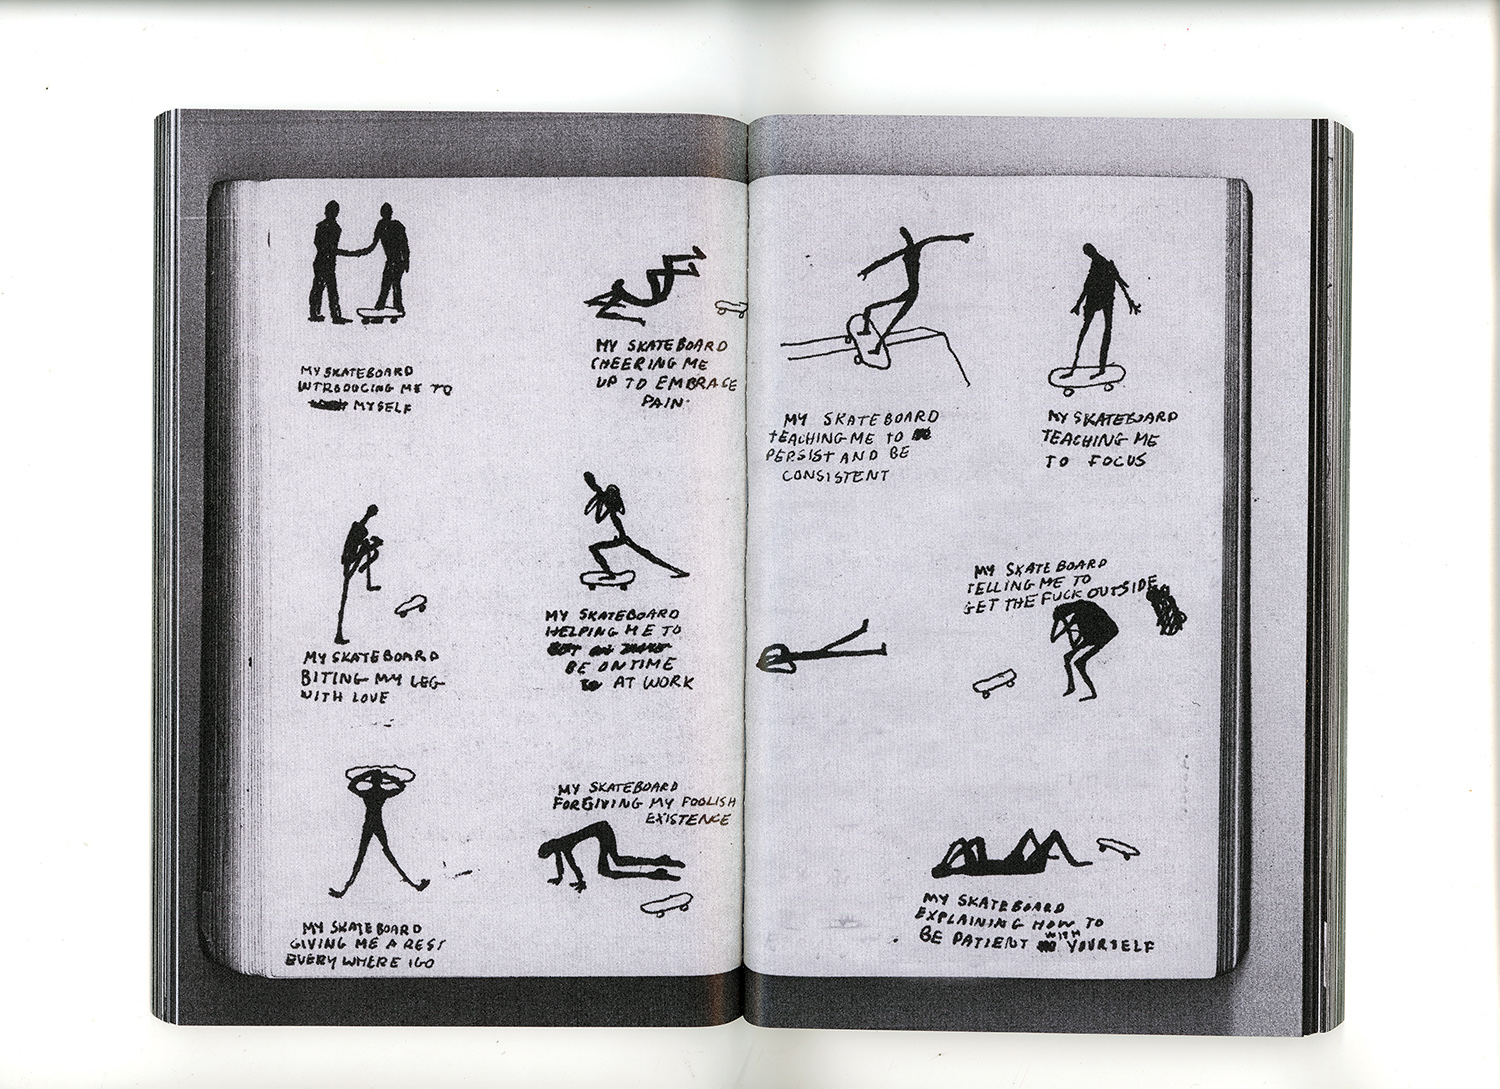 MY SKATEBOARD
INTRODUCING ME TO
MYSELF
MY SKATEBOARD
CHEERING ME
UP TO EMBRACE
PAIN
MY SKATEBOARD
BITING MY LEG
WITH LOVE
MY SKATEBOARD
HELPING ME TO
BE ON TIME
AT WORK
MY SKATEBOARD
GIVING ME A REST
EVERY WHERE I GO
MY SKATEBOARD
FORGIVING MY FOOLISH
EXISTENCE
MY SKATEBOARD
TEACHING ME TO
PERSIST AND BE
CONSISTENT
MY SKATEBOARD
TEACHING ME
TO FOCUS
MY SKATE BOARD
TELLING ME TO
GET THE FUCK OUTSIDE
MY SKATEBOARD
EXPLAINING HOW TO
BE PATIENT WITH YOURSELF